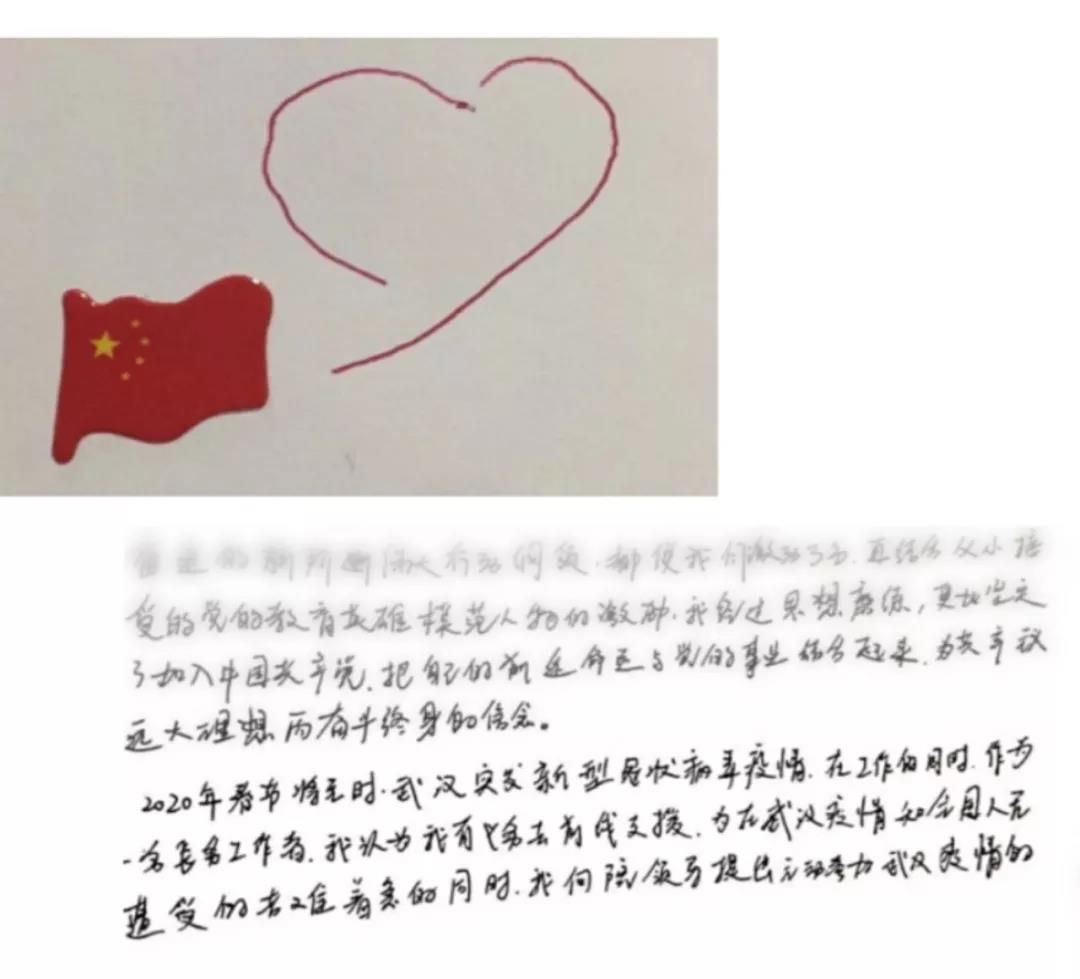 都使我
受的党的教育英雄模范人物的激励.我经过思想磨练,更坚定
了加入中国共产党.把自己的前途命运与党的事业结合起来.为共产
远大理想而奋斗终身的信念。
2020年春节将至时.武汉突发新型冠状病毒疫情.在工作的同时.作为
一名医务工作者.我认为我有必要去前线支援.为在武汉疫情和全国人
遭受的苦难着急的同时.我向院领导提出主动参加武汉疫情的